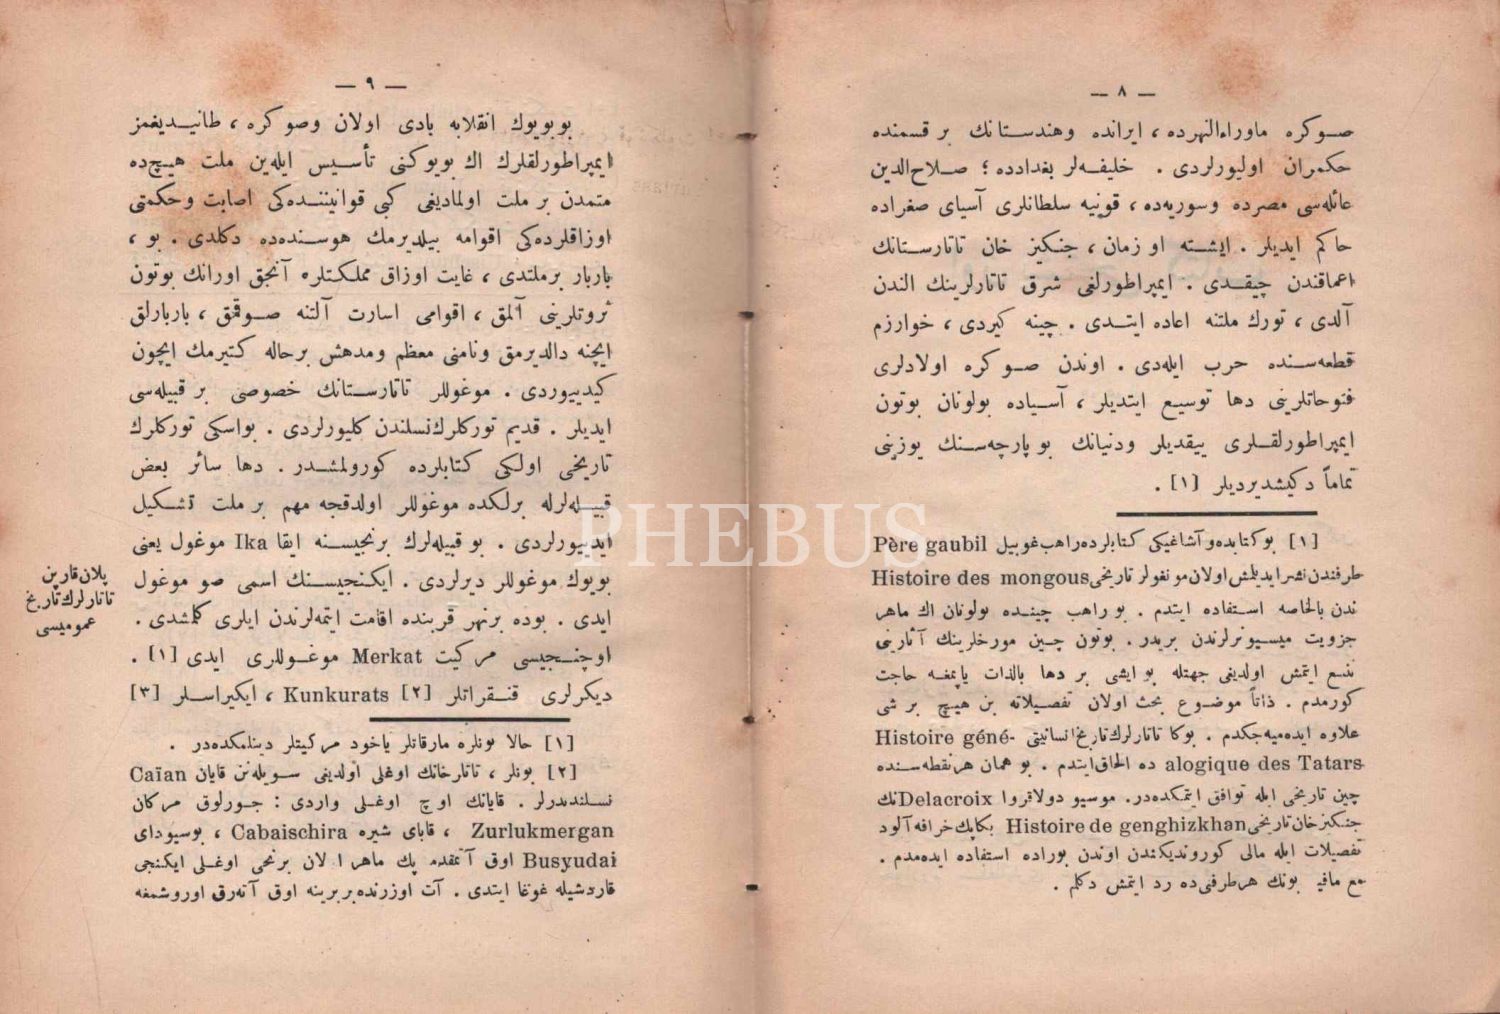 — ٨ —
صوكره ماوراءالنهرده، ايرانده وهندستانك بر قسمنده
حكمران اوليورلردى . خليفه‌لر بغدادده ؛ صلاح‌الدين
عائله‌سى مصرده وسوريه‌ده، قونيه سلطانلرى آسياى صغراده
حاكم ايديلر . ايشته او زمان، جنكيز خان تاتارستانك
اعماقندن چيقدى . ايمپراطورلغى شرق تاتارلرينك الندن
آلدى، تورك ملتنه اعاده ايتدى . چينه كيردى، خوارزم
قطعه‌سنده حرب ايله‌دى . اوندن صوكره اولادلرى
فتوحاتلرينى دها توسيع ايتديلر، آسياده بولونان بوتون
ايمپراطورلقلرى ييقديلر ودنيانك بو پارچه‌سنك يوزينى
تماماً دكيشديرديلر [١] .
[١] بو كتابده و آشاغيكى كتابلرده راهب غوبيل Père gaubil
طرفندن نشر ايديلمش اولان مونغولر تاريخى Histoire des mongous
ندن بالخاصه استفاده ايتدم . بو راهب چينده بولونان اك ماهر
جزويت ميسيونرلرندن بريدر . بوتون چين مورخلرينك آثارينى
تتبع ايتمش اولديغى جهتله بو ايشى بر دها بالذات ياپمغه حاجت
كورمدم . ذاتاً موضوع بحث اولان تفصيلاته بن هيچ بر شى
علاوه ايده‌ميه‌جكدم . بوكا تاتارلرك تاريخ انسانيتى Histoire géné-
alogique des Tatars ده الحاق ايتدم . بو همان هر نقطه‌سنده
چين تاريخى ايله توافق ايتمكده‌در. موسيو دولاقروا Delacroix نك
جنكيزخان تاريخى Histoire de genghizkhan بكا پك خرافه آلود
تفصيلات ايله مالى كوروندیكندن اوندن بوراده استفاده ايده‌مدم .
مع مافيه بونك هر طرفى‌ده رد ايتمش دكلم .
— ٩ —
بو بويوك انقلابه بادى اولان وصوكره، طانيديغمز
ايمپراطورلقلرك اك بويوكنى تأسيس ايله‌ين ملت هيچ‌ده
متمدن بر ملت اولماديغى كبى قوانيننده‌كى اصابت وحكمتى
اوزاقلرده‌كى اقوامه بيلديرمك هوسنده‌ده دكلدى . بو،
باربار بر ملتدى، غايت اوزاق مملكتلره آنجق اورانك بوتون
ثروتلرينى آلمق، اقوامى اسارت آلتنه صوقمق، باربارلق
ايچنه دالديرمق ونامنى معظم ومدهش بر حاله كتيرمك ايچون
كيدييوردى . موغوللر تاتارستانك خصوصى بر قبيله‌سى
ايديلر . قديم توركلرك نسلندن كليورلردى . بو اسكى توركلرك
تاريخى اولكى كتابلرده كورولمشدر . دها سائر بعض
قبيله‌لرله برلكده موغوللر اولدقجه مهم بر ملت تشكيل
ايدييورلردى . بو قبيله‌لرك برنجيسنه ايقا Ika موغول يعنى
بويوك موغوللر ديرلردى . ايكنجيسنك اسمى صو موغول
ايدى . بوده بر نهر قربنده اقامت ايتمه‌لرندن ايلرى كلمشدى .
اوچنجيسى مركيت Merkat موغوللرى ايدى [١] .
ديكرلرى قنقراتلر [٢] Kunkurats ، ايكيراسلر [٣]
پلان قارپن
تاتارلرك تاريخ
عموميسى
[١] حالا بونلره مارقاتلر ياخود مركيتلر دينلمكده‌در .
[٢] بونلر، تاتارخانك اوغلى اولديغى سويله‌نن قايان Caïan
نسلندندرلر . قايانك اوچ اوغلى واردى : جورلوق مركان
Zurlukmergan ، قاباى شيره Cabaischira ، بوسيوداى
Busyudai اوق آتمقده پك ماهر اولان برنجى اوغلى ايكنجى
قاردشيله غوغا ايتدى . آت اوزرنده بربرينه اوق آته‌رق اوروشمغه
PHEBUS